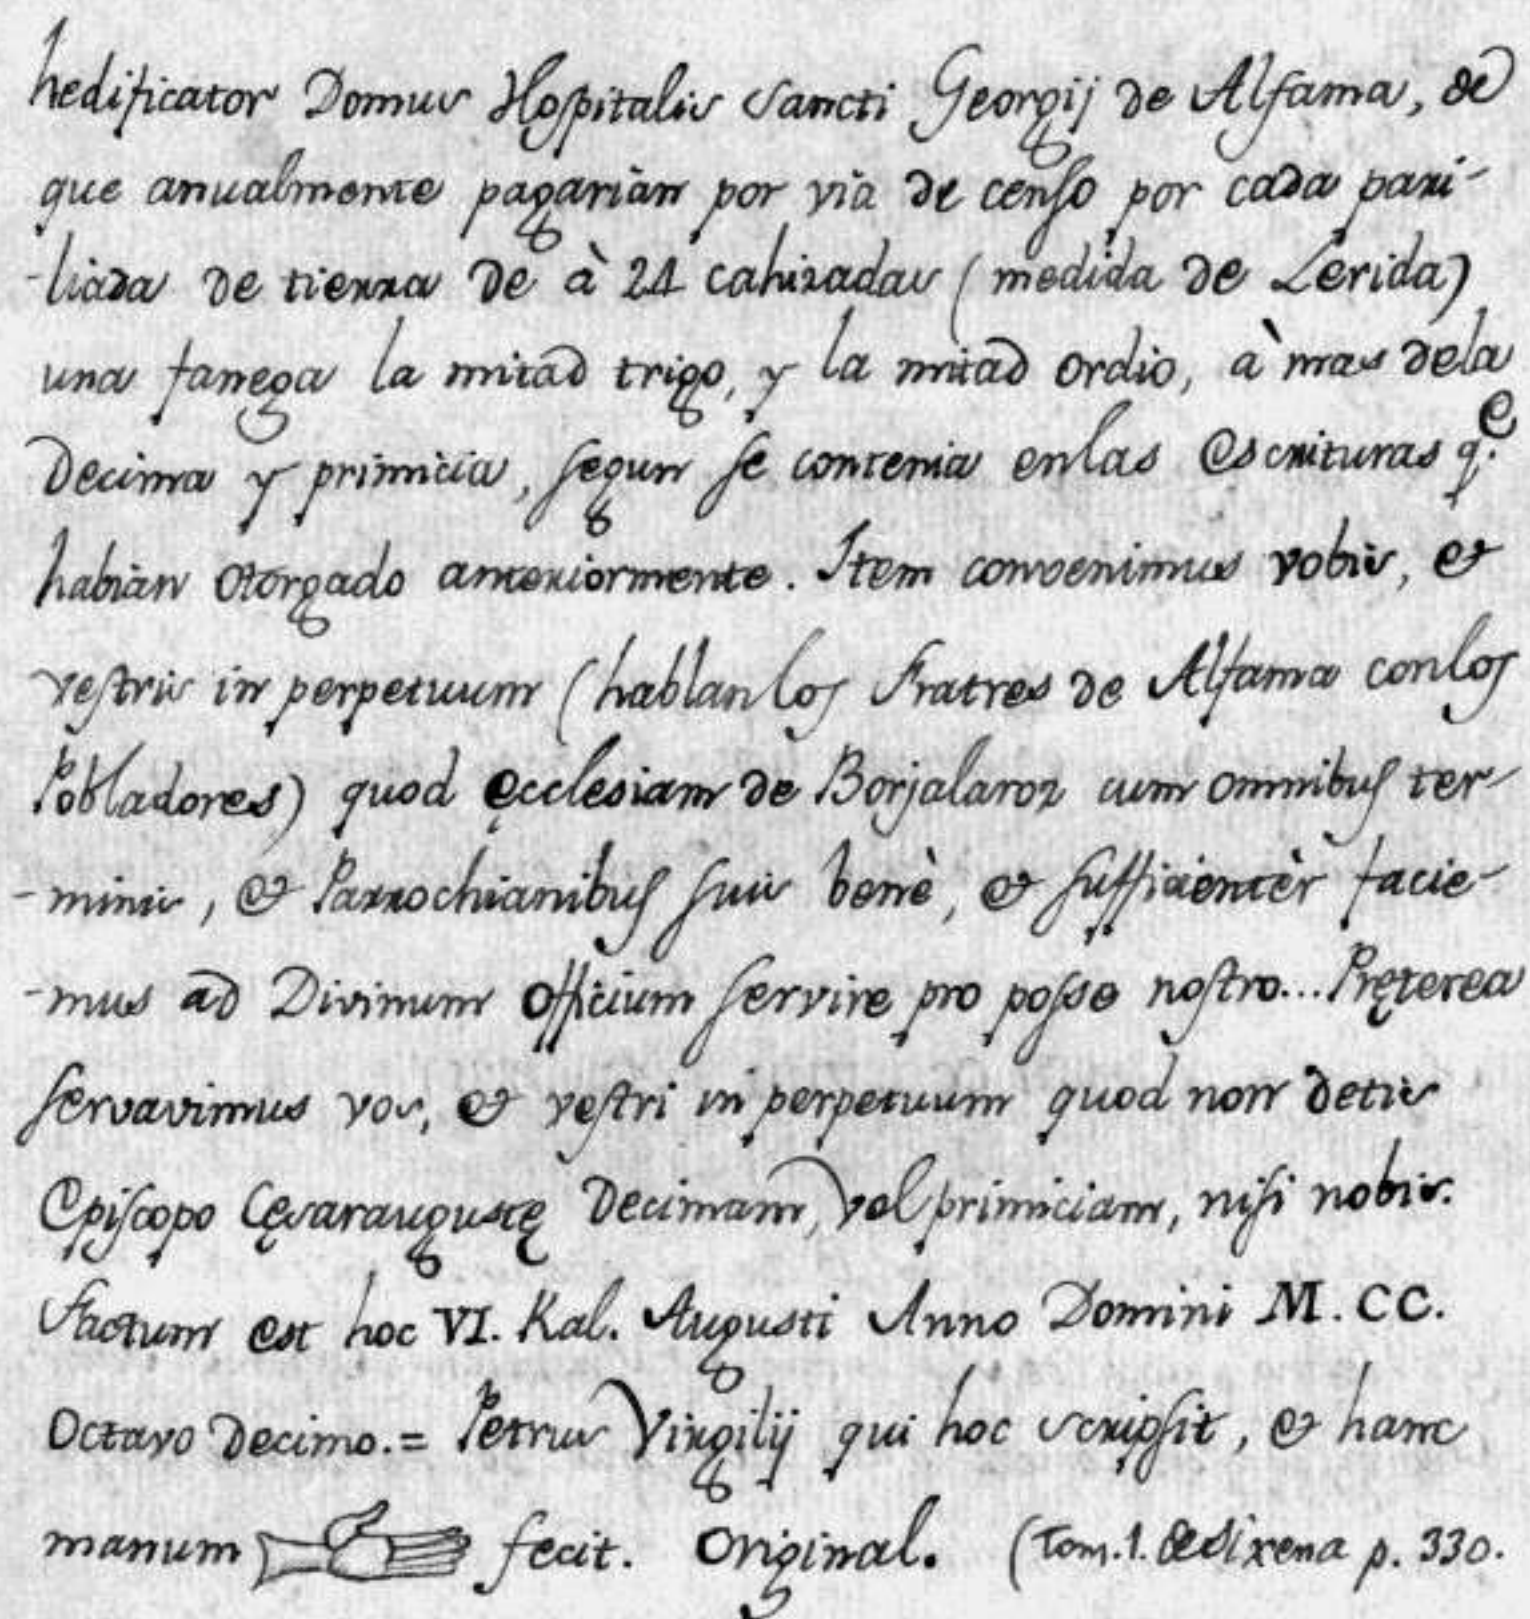 hedificator Domus Hospitalis Sancti Georgij de Alfama, de
que anualmente pagarian por via de censo por cada pari-
-liada de tierra de à 24 cahizadas (medida de Lerida)
una fanega la mitad trigo, y la mitad ordio, à mas dela
decima y primicia, segun se contenia enlas Escrituras q.e
habian otorgado anteriormente. Item convenimus vobis, et
vestris in perpetuum (hablan los Fratres de Alfama conlos
Pobladores) quod ecclesiam de Borjalaroz cum omnibus ter-
-minis, et Parrochianibus suis benè, et sufficientèr facie-
-mus ad Divinum officium servire pro posse nostro... Pręterea
servavimus vos, et vestri in perpetuum quod non detis
Episcopo Cęsaraugustę Decimam, vel primiciam, nisi nobis.
Factum est hoc VI. Kal. Augusti Anno Domini M. CC.
Octavo Decimo. = Petrus Virgilij qui hoc scripsit, et hanc
manum fecit. Original. (Tom. 1. de Sixena p. 330.